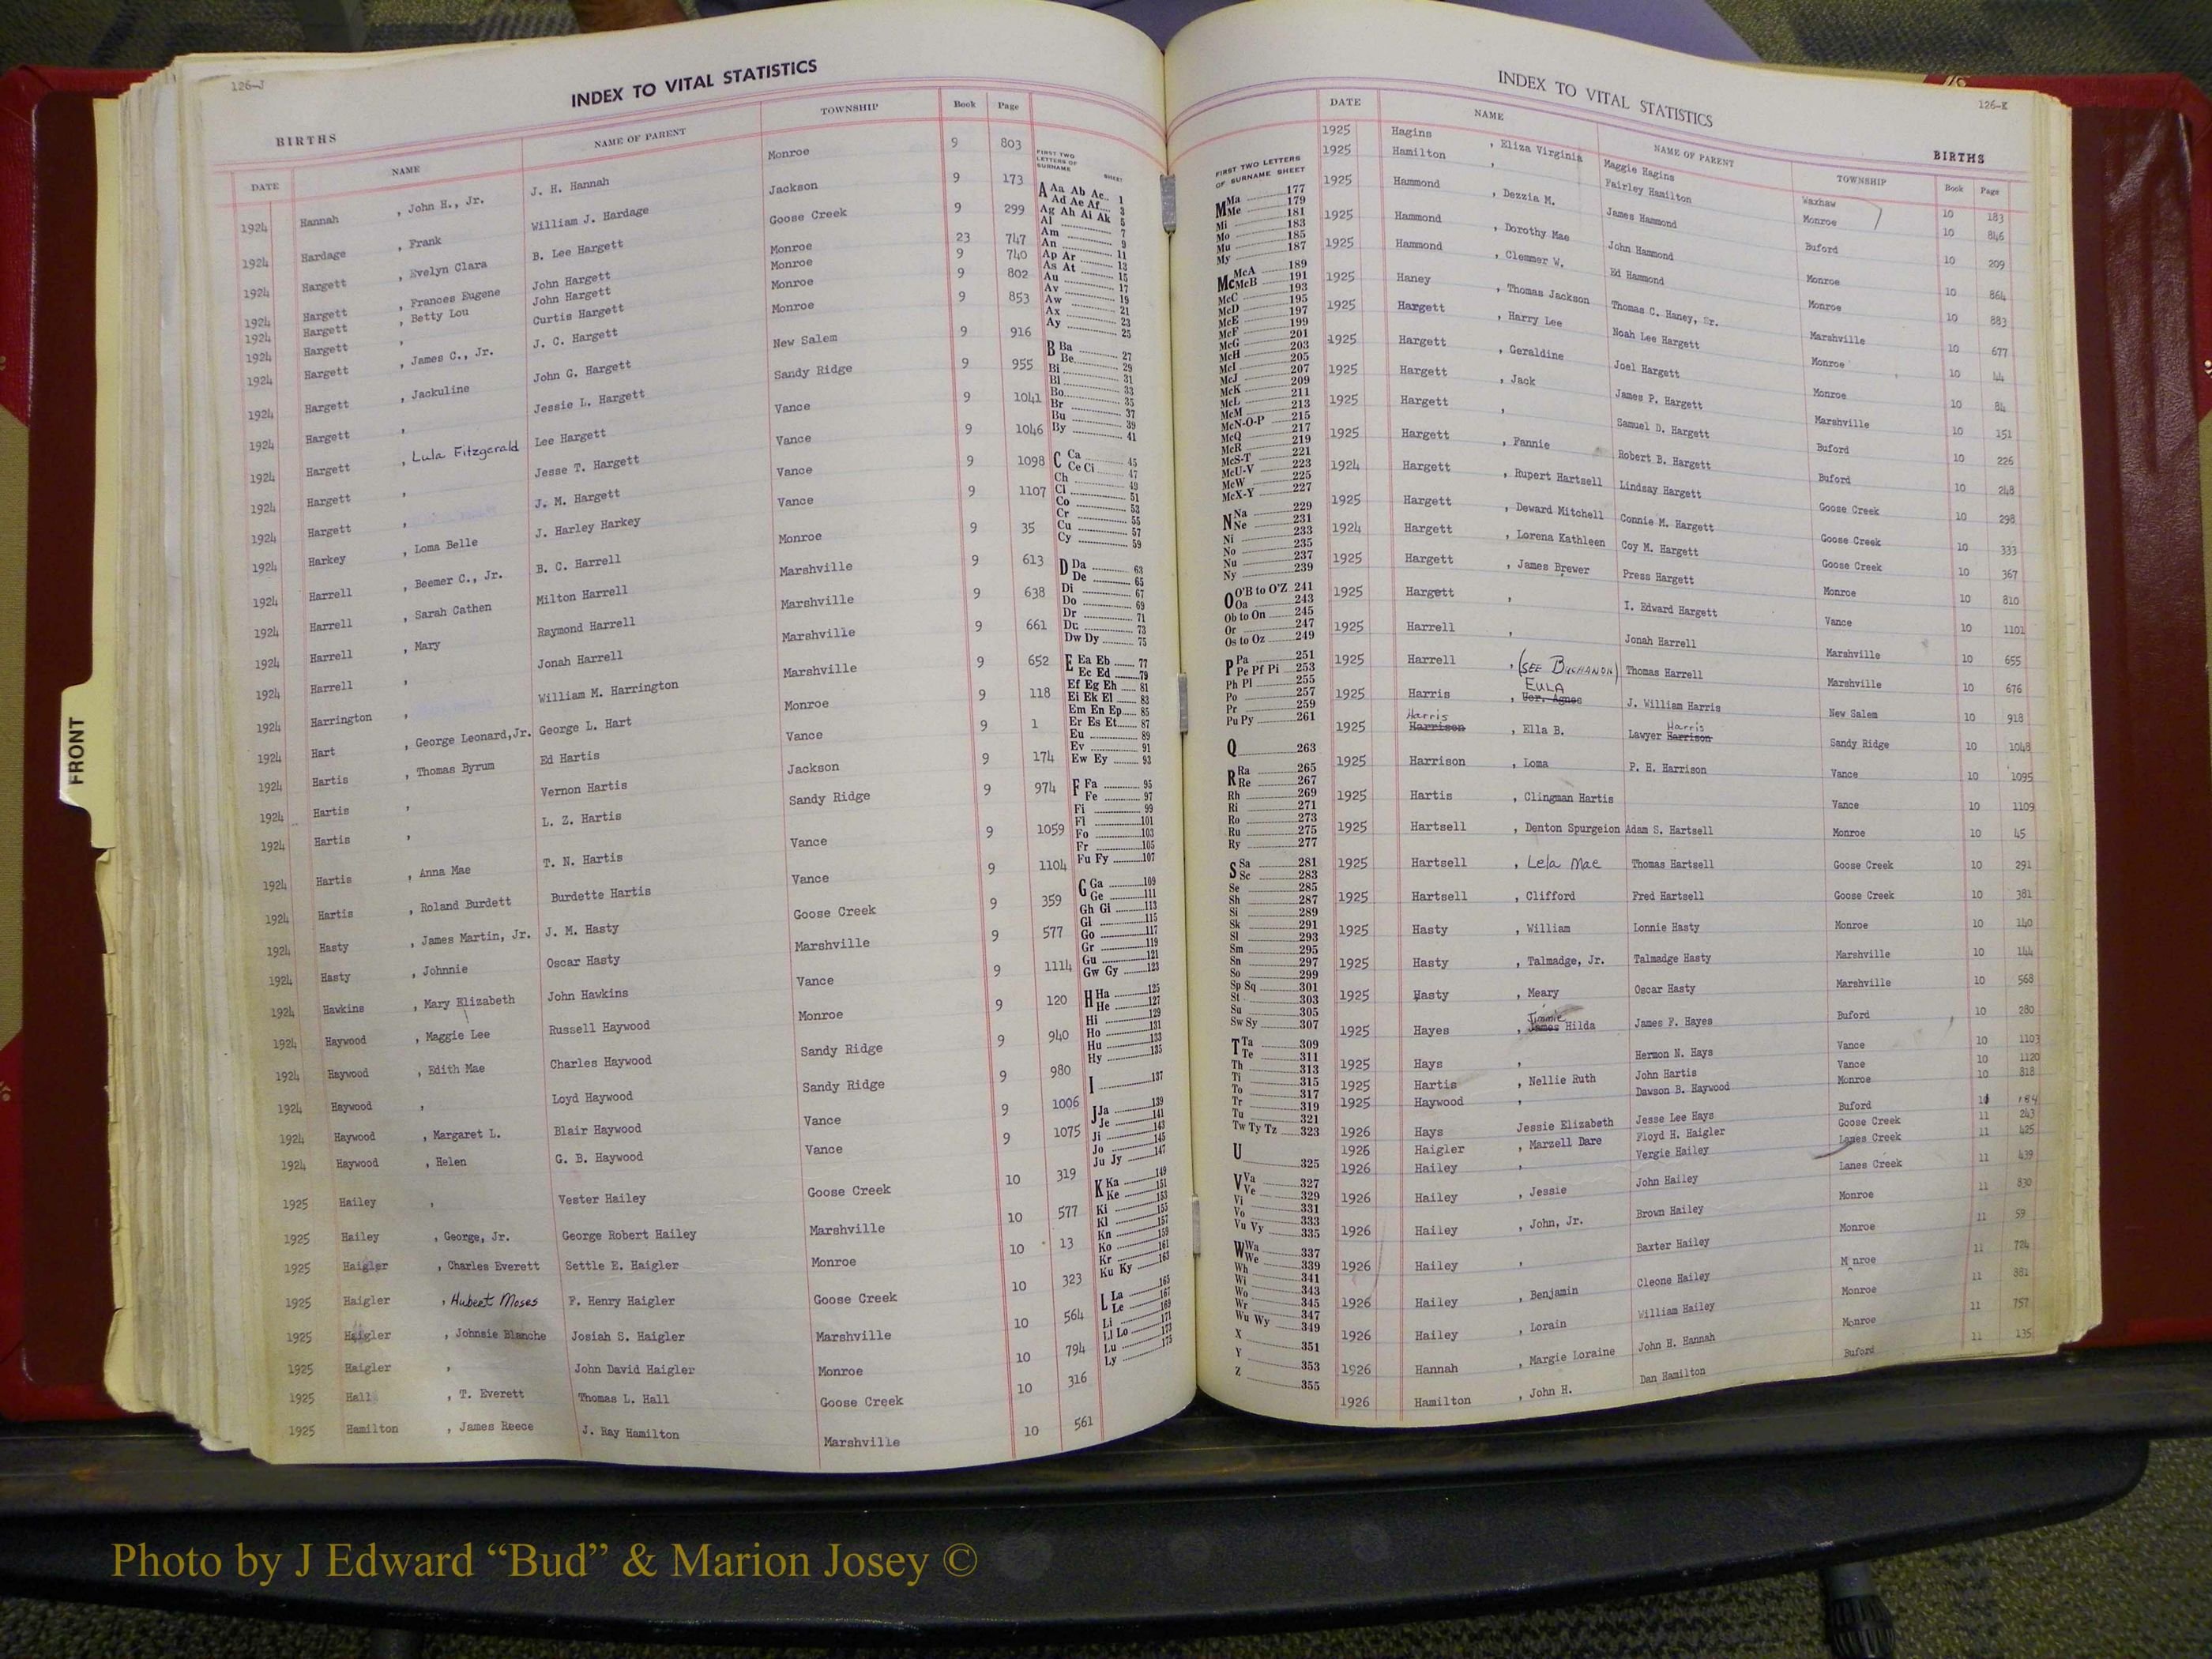 126-J
INDEX TO VITAL STATISTICS
BIRTHS
DATE NAME NAME OF PARENT TOWNSHIP Book Page
1924 Hannah , John H., Jr. J. H. Hannah Monroe 9 803
1924 Hardage , Frank William J. Hardage Jackson 9 173
1924 Hargett , Evelyn Clara B. Lee Hargett Goose Creek 9 299
1924 Hargett , Frances Eugene John Hargett Monroe 23 747
1924 Hargett , Betty Lou John Hargett Monroe 9 740
1924 Hargett , Curtis Hargett Monroe 9 802
1924 Hargett , James C., Jr. J. C. Hargett Monroe 9 853
1924 Hargett , Jackuline John G. Hargett New Salem 9 916
1924 Hargett , Jessie L. Hargett Sandy Ridge 9 955
1924 Hargett , Lula Fitzgerald Lee Hargett Vance 9 1041
1924 Hargett , Jesse T. Hargett Vance 9 1046
1924 Hargett , J. M. Hargett Vance 9 1098
1924 Harkey , Loma Belle J. Harley Harkey Vance 9 1107
1924 Harrell , Beemer C., Jr. B. C. Harrell Monroe 9 35
1924 Harrell , Sarah Cathen Milton Harrell Marshville 9 613
1924 Harrell , Mary Raymond Harrell Marshville 9 638
1924 Harrell , Jonah Harrell Marshville 9 661
1924 Harrington , William M. Harrington Marshville 9 652
1924 Hart , George Leonard,Jr. George L. Hart Monroe 9 118
1924 Hartis , Thomas Byrum Ed Hartis Vance 9 1
1924 Hartis , Vernon Hartis Jackson 9 174
1924 Hartis , L. Z. Hartis Sandy Ridge 9 974
1924 Hartis , Anna Mae T. N. Hartis Vance 9 1059
1924 Hartis , Roland Burdett Burdette Hartis Vance 9 1104
1924 Hasty , James Martin, Jr. J. M. Hasty Goose Creek 9 359
1924 Hasty , Johnnie Oscar Hasty Marshville 9 577
1924 Hawkins , Mary Elizabeth John Hawkins Vance 9 1114
1924 Haywood , Maggie Lee Russell Haywood Monroe 9 120
1924 Haywood , Edith Mae Charles Haywood Sandy Ridge 9 940
1924 Haywood , Loyd Haywood Sandy Ridge 9 980
1924 Haywood , Margaret L. Blair Haywood Vance 9 1006
1924 Haywood , Helen G. B. Haywood Vance 9 1075
1925 Hailey , Vester Hailey Goose Creek 10 319
1925 Hailey , George, Jr. George Robert Hailey Marshville 10 577
1925 Haigler , Charles Everett Settle E. Haigler Monroe 10 13
1925 Haigler , Hubert Moses F. Henry Haigler Goose Creek 10 323
1925 Haigler , Johnsie Blanche Josiah S. Haigler Marshville 10 564
1925 Haigler , John David Haigler Monroe 10 794
1925 Hall , T. Everett Thomas L. Hall Goose Creek 10 316
1925 Hamilton , James Reece J. Ray Hamilton Marshville 10 561
FIRST TWO
LETTERS OF
SURNAME SHEET
A Aa Ab Ac 1
Ad Ae Af 3
Ag Ah Ai Ak 5
Al 7
Am 9
An 11
Ap Ar 13
As At 15
Au 17
Av 19
Aw 21
Ax 23
Ay 25
B Ba 27
Be 29
Bi 31
Bl 33
Bo 35
Br 37
Bu 39
By 41
C Ca 45
Ce Ci 47
Ch 49
Cl 51
Co 53
Cr 55
Cu 57
Cy 59
D Da 63
De 65
Di 67
Do 69
Dr 71
Du 73
Dw Dy 75
E Ea Eb 77
Ec Ed 79
Ef Eg Eh 81
Ei Ek El 83
Em En Ep 85
Er Es Et 87
Eu 89
Ev 91
Ew Ey 93
F Fa 95
Fe 97
Fi 99
Fl 101
Fo 103
Fr 105
Fu Fy 107
G Ga 109
Ge 111
Gh Gi 113
Gl 115
Go 117
Gr 119
Gu 121
Gw Gy 123
H Ha 125
He 127
Hi 129
Ho 131
Hu 133
Hy 135
I 137
J Ja 139
Je 141
Ji 143
Jo 145
Ju Jy 147
K Ka 149
Ke 151
Ki 153
Kl 155
Kn 157
Ko 159
Kr 161
Ku Ky 163
L La 165
Le 167
Li 169
Ll Lo 171
Lu 173
Ly 175
126-K
INDEX TO VITAL STATISTICS
BIRTHS
FIRST TWO LETTERS
OF SURNAME SHEET
M Ma 177
Me 179
Mi 181
Mo 183
Mu 185
My 187
Mc McA 189
McB 191
McC 193
McD 195
McE 197
McF 199
McG 201
McH 203
McI 205
McJ 207
McK 209
McL 211
McM 213
McN-O-P 215
McQ 217
McR 219
McS-T 221
McU-V 223
McW 225
McX-Y 227
N Na 229
Ne 231
Ni 233
No 235
Nu 237
Ny 239
O O'B to O'Z 241
Oa 243
Ob to On 245
Or 247
Os to Oz 249
P Pa 251
Pe Pf Pi 253
Ph Pl 255
Po 257
Pr 259
Pu Py 261
Q 263
R Ra 265
Re 267
Rh 269
Ri 271
Ro 273
Ru 275
Ry 277
S Sa 281
Sc 283
Se 285
Sh 287
Si 289
Sk 291
Sl 293
Sm 295
Sn 297
So 299
Sp Sq 301
St 303
Su 305
Sw Sy 307
T Ta 309
Te 311
Th 313
Ti 315
To 317
Tr 319
Tu 321
Tw Ty Tz 323
U 325
V Va 327
Ve 329
Vi 331
Vo 333
Vu Vy 335
W Wa 337
We 339
Wh 341
Wi 343
Wo 345
Wr 347
Wu Wy 349
X 351
Y 353
Z 355
DATE NAME NAME OF PARENT TOWNSHIP Book Page
1925 Hagins , Eliza Virginia Maggie Hagins Waxhaw 10 183
1925 Hamilton , Fairley Hamilton Monroe 10 846
1925 Hammond , Dezzia M. James Hammond Buford 10 209
1925 Hammond , Dorothy Mae John Hammond Monroe 10 864
1925 Hammond , Clemmer W. Ed Hammond Monroe 10 883
1925 Haney , Thomas Jackson Thomas C. Haney, Sr. Marshville 10 677
1925 Hargett , Harry Lee Noah Lee Hargett Monroe 10 44
1925 Hargett , Geraldine Joel Hargett Monroe 10 84
1925 Hargett , Jack James P. Hargett Marshville 10 151
1925 Hargett , Samuel D. Hargett Buford 10 226
1925 Hargett , Fannie Robert B. Hargett Buford 10 248
1924 Hargett , Rupert Hartsell Lindsay Hargett Goose Creek 10 298
1925 Hargett , Deward Mitchell Connie M. Hargett Goose Creek 10 333
1924 Hargett , Lorena Kathleen Coy M. Hargett Goose Creek 10 367
1925 Hargett , James Brewer Press Hargett Monroe 10 810
1925 Hargett , I. Edward Hargett Vance 10 1101
1925 Harrell , Jonah Harrell Marshville 10 655
1925 Harrell , (SEE BUCHANON) Thomas Harrell Marshville 10 676
EULA
1925 Harris , Ver. Agnes J. William Harris New Salem 10 918
Harris Harris
1925 Harrison , Ella B. Lawyer Harrison Sandy Ridge 10 1048
1925 Harrison , Loma P. H. Harrison Vance 10 1095
1925 Hartis , Clingman Hartis Vance 10 1109
1925 Hartsell , Denton Spurgeion Adam S. Hartsell Monroe 10 45
1925 Hartsell , Lela Mae Thomas Hartsell Goose Creek 10 291
1925 Hartsell , Clifford Fred Hartsell Goose Creek 10 381
1925 Hasty , William Lonnie Hasty Monroe 10 140
1925 Hasty , Talmadge, Jr. Talmadge Hasty Marshville 10 144
1925 Hasty , Meary Oscar Hasty Marshville 10 568
Jimmie
1925 Hayes , James Hilda James F. Hayes Buford 10 280
1925 Hays , Hermon N. Hays Vance 10 1103
1925 Hartis , Nellie Ruth John Hartis Vance 10 1120
1925 Haywood , Dawson B. Haywood Monroe 10 818
1926 Hays Jessie Elizabeth Jesse Lee Hays Buford 184
1926 Haigler , Marzell Dare Floyd H. Haigler Goose Creek 11 243
1926 Hailey , Vergie Hailey Lanes Creek 11 425
1926 Hailey , Jessie John Hailey Lanes Creek 11 439
1926 Hailey , John, Jr. Brown Hailey Monroe 11 830
1926 Hailey , Baxter Hailey Monroe 11 59
1926 Hailey , Benjamin Cleone Hailey Mnroe 11 724
1926 Hailey , Lorain William Hailey Monroe 11 381
1926 Hannah , Margie Loraine John H. Hannah Monroe 11 757
1926 Hamilton , John H. Dan Hamilton Buford 11 135
FRONT
Photo by J Edward “Bud” & Marion Josey ©